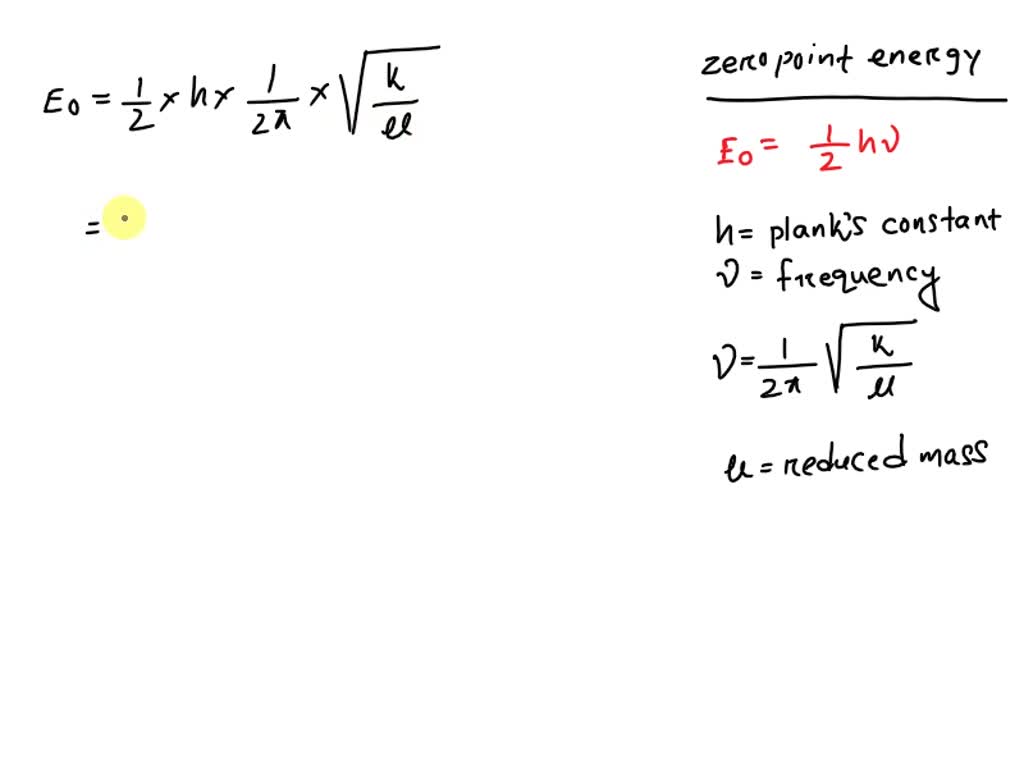 E₀ = 1/2 × h × 1/2π × √(k/μ)
=
zero point energy
E₀ = 1/2 hν
h = plank's constant
ν = frequency
ν = 1/2π √(k/μ)
μ = reduced mass